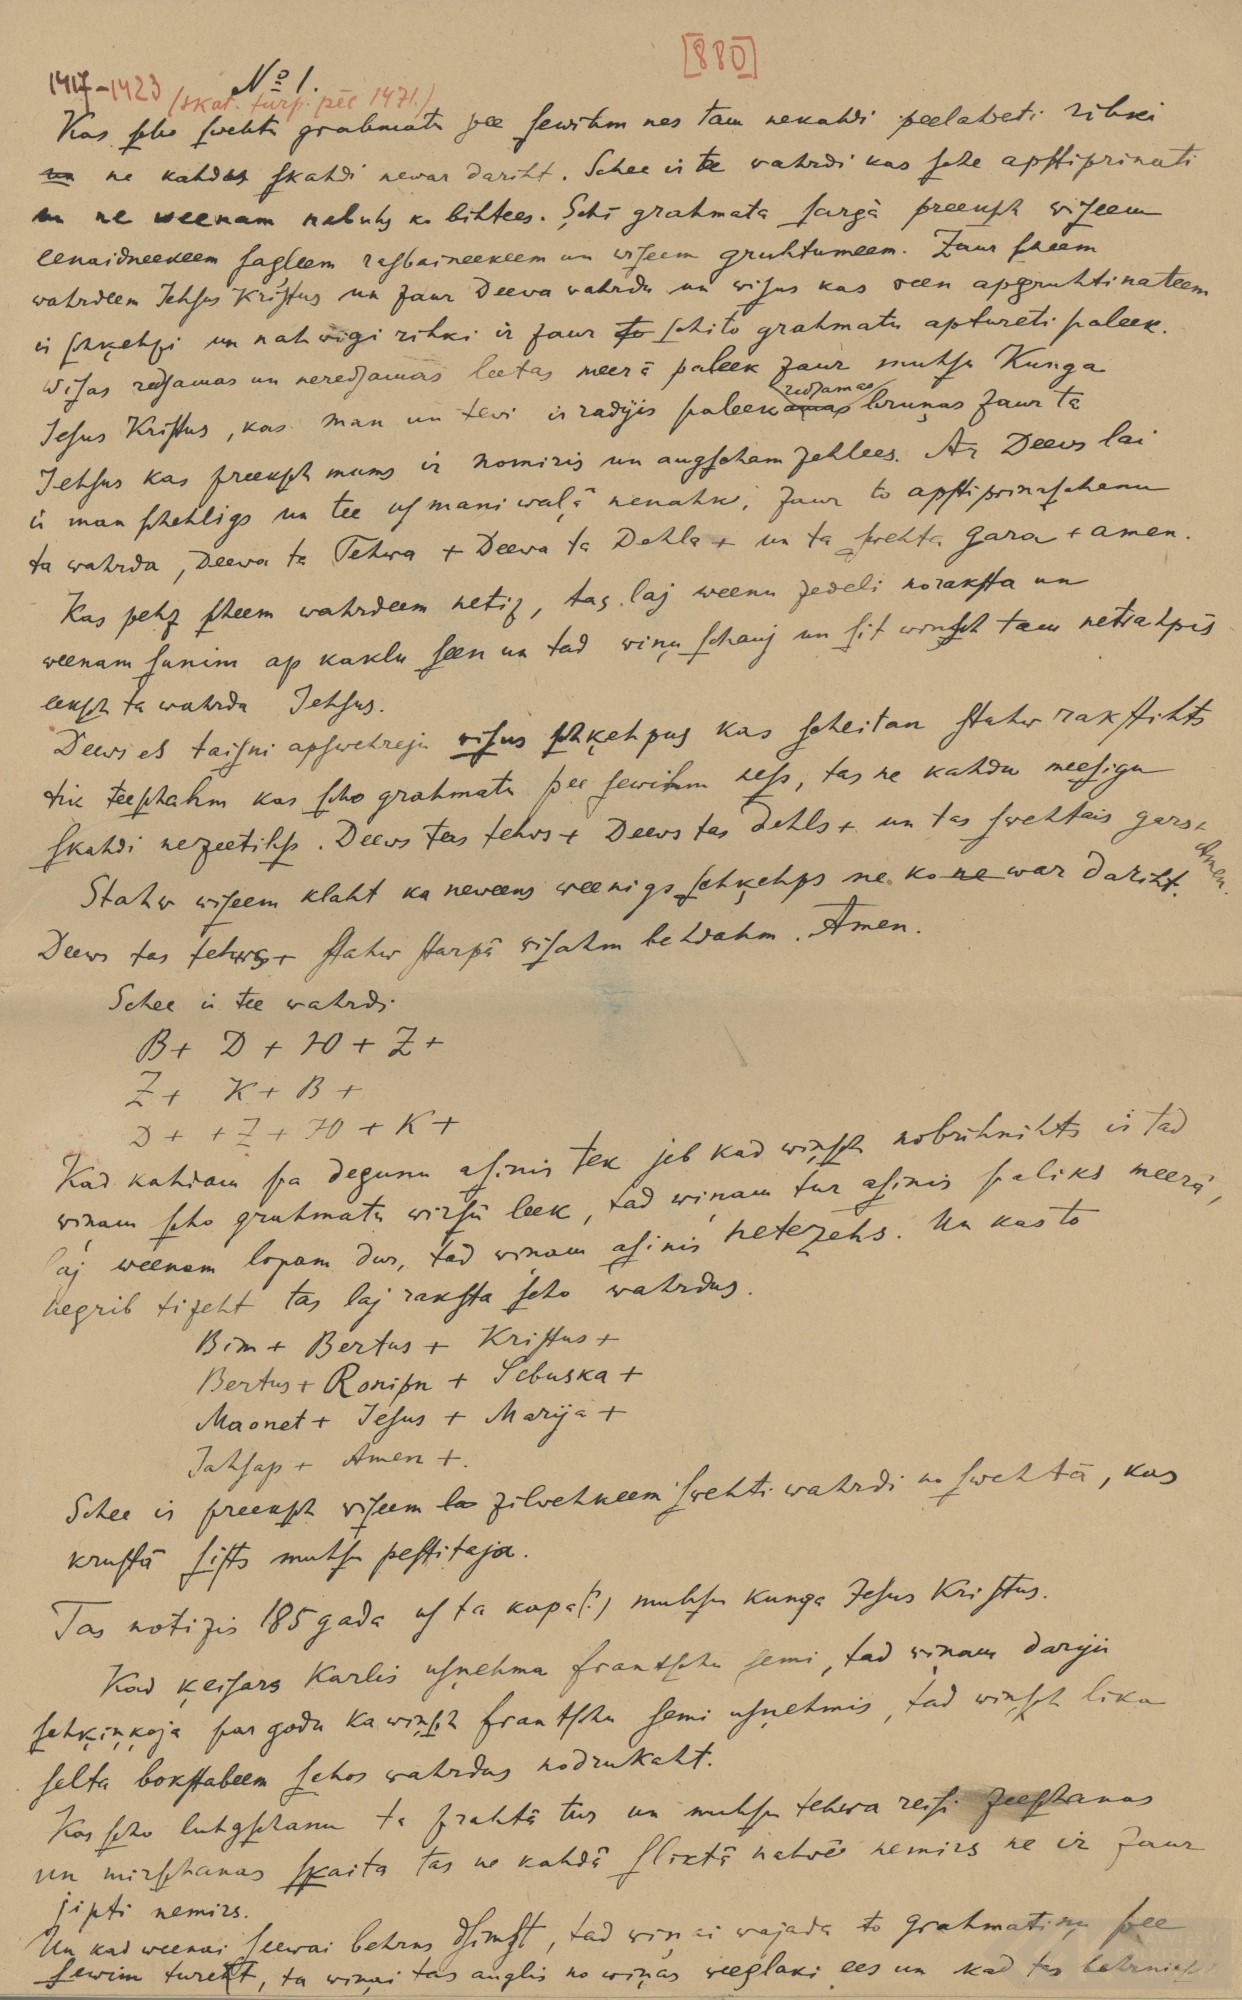 [880]
1417-1423 (skat. turp. pēc 1471.)
№ 1.
Kas scho swehtu grahmatu pee sewihm nes tam nekahdi peelahdeti rihki
ne kahdu skahdi newar dariht. Schee ir tee wahrdi kas sche apstiprinati
un ne weenam nebuhs ko bihtees. Schi grahmata sargā preeksch wiseem
eenaidneekeem sagleem rasbaineekeem un wiseem gruhtumeem. Zaur scheem
wahrdeem Jehsus Kristus un zaur Deewa wahrdu un wisus kas ween apgruhtinateem
ir schķehpi un nahwigi rihki ir zaur to schito grahmatu aptureti paleek.
Wisas redsamas un neredsamas leetas meerā paleek zaur muhsu Kunga
Jesus Kristus, kas man un tewi ir radijis paleek redsamas bruņas zaur ta
Jehsus kas preeksch mums ir nomiris un augscham zehlees. Ar Deews lai
ir man schehligs un tee us mani waļā nenahk, zaur to apstiprinaschanu
ta wahrda, Deewa ta Tehwa + Deewa ta Dehla + un ta swehta gara + amen.
Kas pehz scheem wahrdeem netiz, tas laj weenu zedeli noraksta un
weenam sunim ap kaklu seen un tad wiņu schauj un sit winsch tam netrahpīs
eeksch ta wahrda Jehsus.
Deews es taisni apswehreju wisus schķehpus kas scheitan stahw rakstihts
tik teeschahm kas scho grahmatu pee sewihm ness, tas ne kahdu meesigu
skahdi nezeetihs. Deews tas tehws + Deews tas dehls + un tas swehtais gars + Amen.
Stahw wiseem klaht ka neweens weenigs schķehps ne ko ne war dariht.
Deews tas tehws + stahw starpā wisahm behdahm. Amen.
Schee ir tee wahrdi
B + D + JO + Z +
Z + K + B +
D + + Z + JO + K +
Kad kahdam pa degunu asinis tek jeb kad wiņsch nobrihnihts ir tad
wiņam scho grahmatu wirsū leek, tad wiņam tur asinis paliks meerā,
laj weenam lopam dur, tad wiņam asinis netezehs. Un kas to
negrib tizeht tas laj raksta scho wahrdus.
Bim + Bertus + Kristus +
Bertus + Ronipn + Sebuska +
Maonet + Jesus + Marija +
Jahsap + Amen +.
Schee ir preeksch wiseem la zilwehkeem swehti wahrdi no swehtā, kas
krustā sists muhsu pestitaja.
Tas notizis 185 gada us ta kapa(?) muhsu kunga Jesus Kristus.
Kad ķeisars Karlis usņehma frantschu semi, tad wiņam darija
schķiņķoja par godu ka wiņsch frantschu semi usņehmis, tad wiņsch lika
selta bokstabeem schos wahrdus nodrukaht.
Kas scho luhgschanu ta prahtā tur un muhsu tehwa reisi zeeschanas
un mirschanas skaita tas ne kahdā sliktā nahwē nemirs ne ir zaur
jipti nemirs.
Un kad weenai seewai behrns dsimst, tad wiņai wajada to grahmatiņu pee
sewim tureht, ta wiņai tas auglis no wiņas weeglaki ees un kad tas behrniņsch